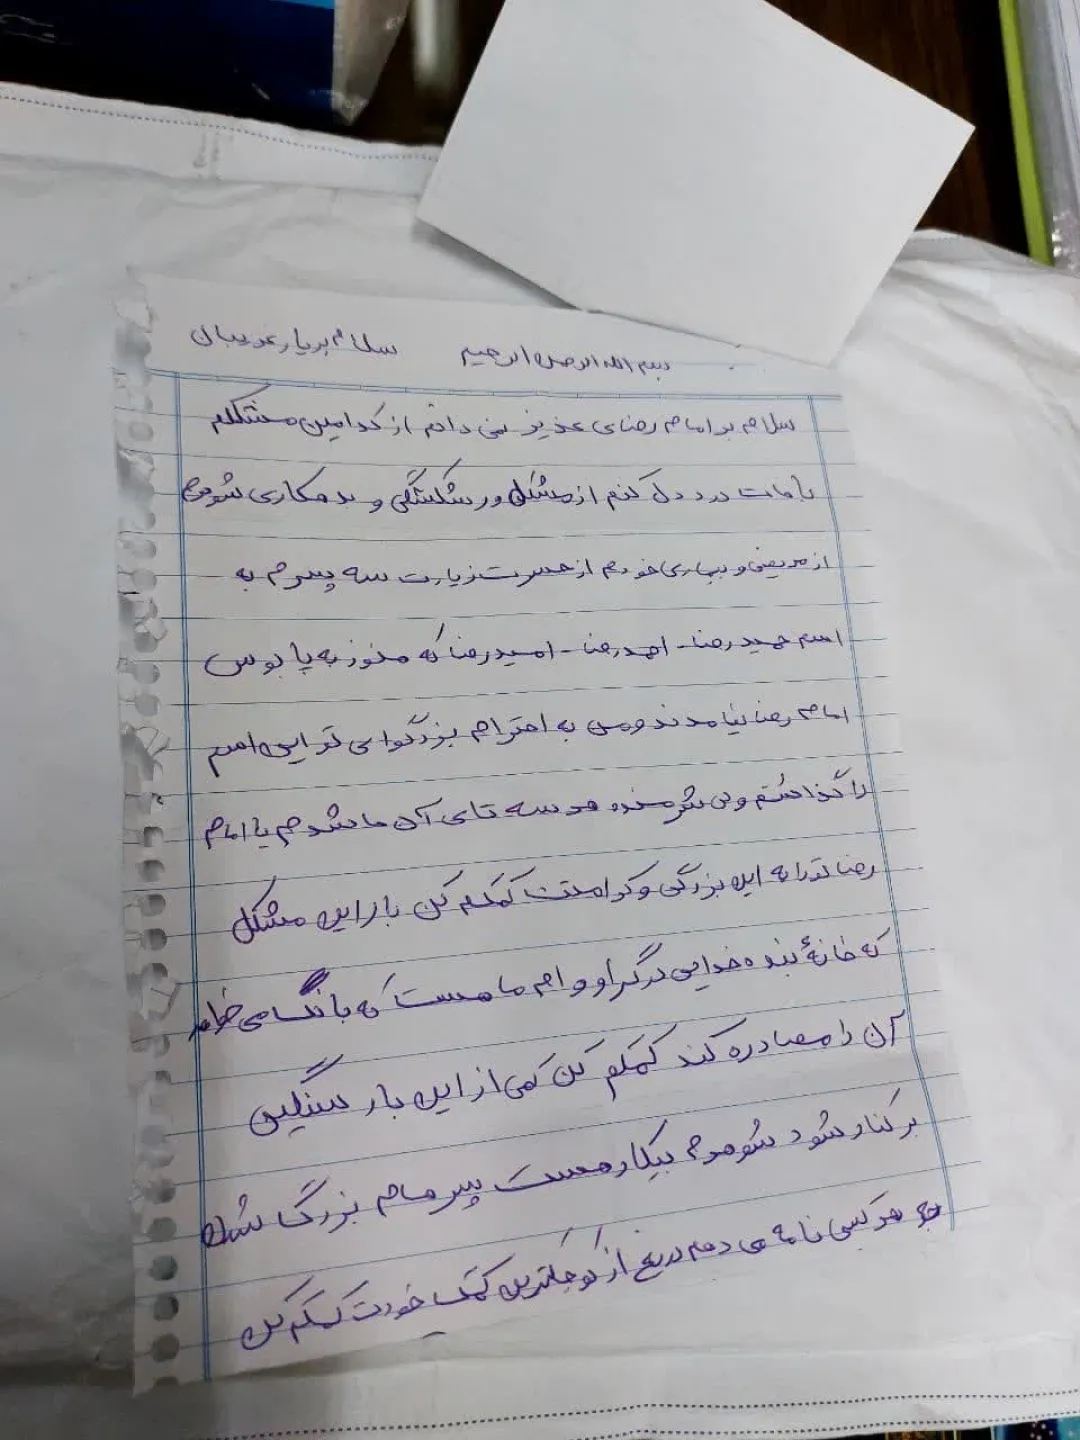 بسم الله الرحمن الرحیم سلام بر یار غریبان
سلام بر امام رضای عزیز نمی دانم از کدامین مشکلم
باهات درد دل کنم از مشکل ورشکستگی و بدهکاری شوهرم
از مریضی و بیماری خودم از حسرت زیارت سه پسرم به
اسم حمیدرضا - احمدرضا - امیدرضا که هنوز به پابوس
امام رضا نیامدند و من به احترام بزرگواری تو این اسم
را گذاشتم ولی شرمنده هر سه تای آن ها شدم یا امام
رضا تو را به این بزرگی و کرامتت کمکم کن بار این مشکل
که خانهٔ بنده خدایی درگرو وام ما هست که بانک می خواهد
آن را مصادره کند کمکم کن کمی از این بار سنگین
برکنار شود شوهرم بیکار هست پسرهام بزرگ شدند
به هر کسی نامه می دهم دریغ از کوچکترین کمک خودت کمکم کن